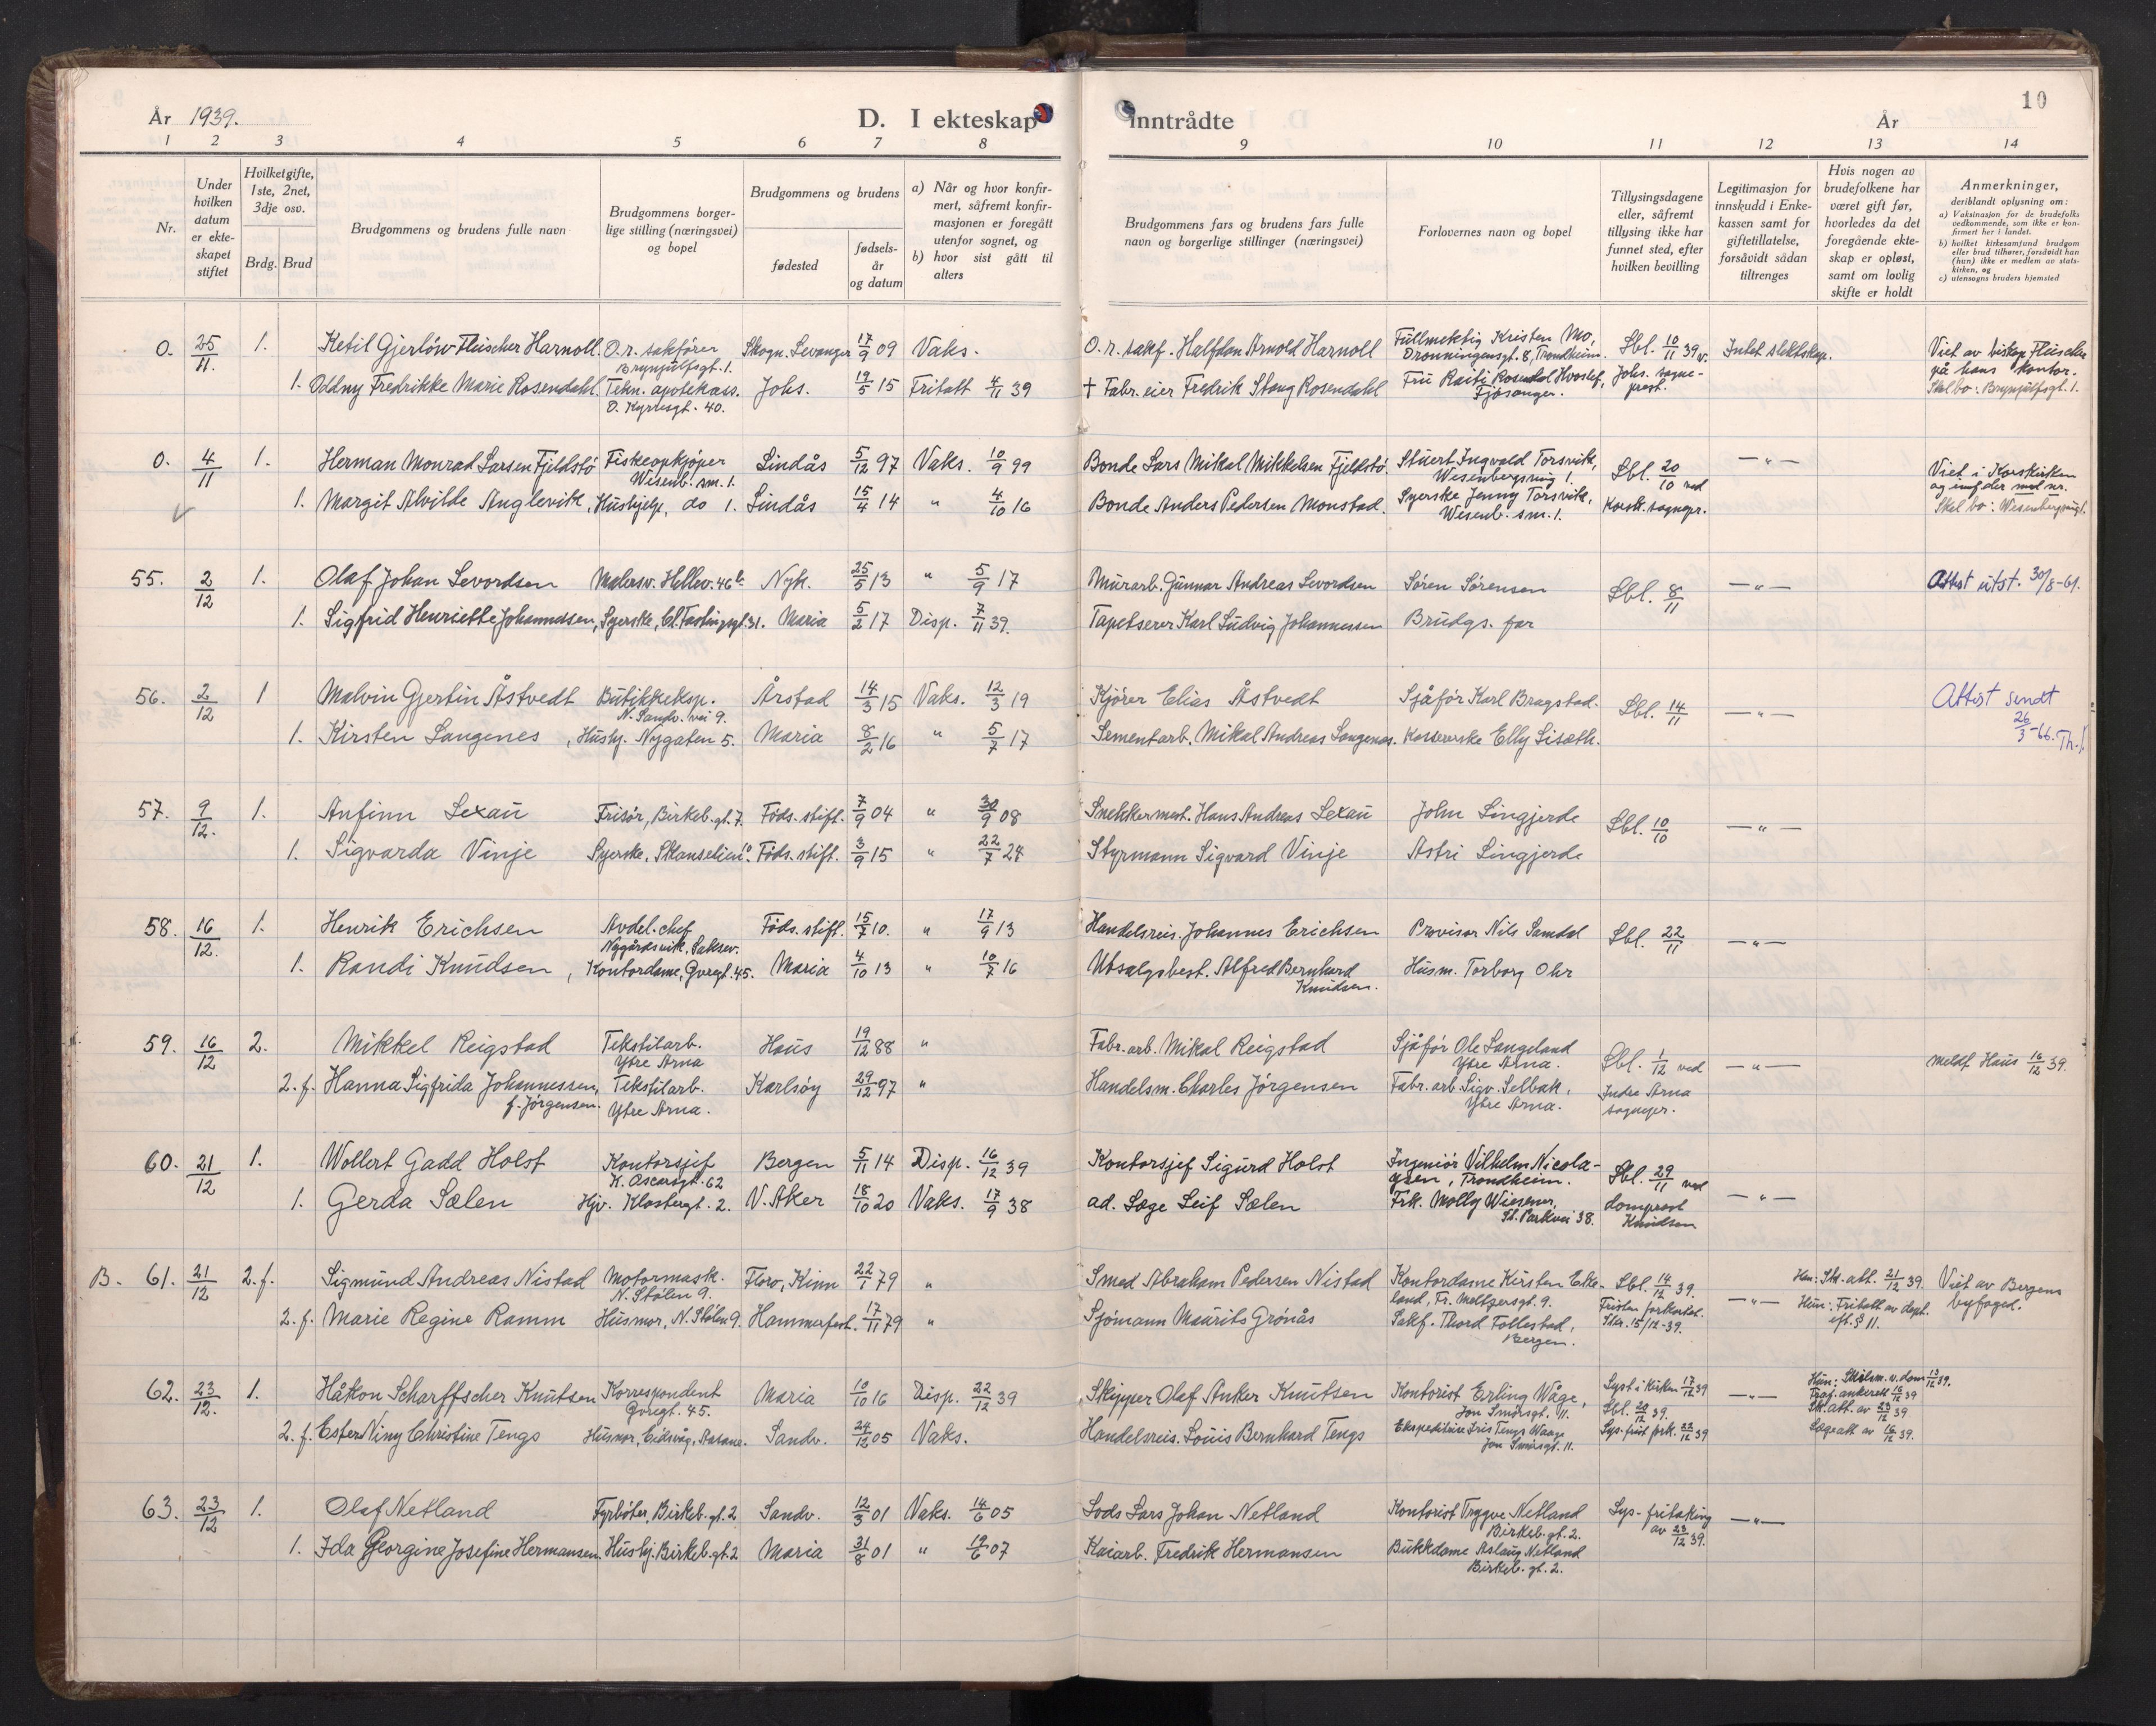 År 1939.
D. I ekteskap inntrådte
År
10
1 2 3 4 5 6 7 8 9 10 11 12 13 14
Nr.
Under hvilken datum er ekteskapet stiftet
Hvilket gifte, 1ste, 2net, 3dje osv.
Brdg. Brud
Brudgommens og brudens fulle navn
Brudgommens borgerlige stilling (næringsvei) og bopel
Brudgommens og brudens
fødested
fødselsår og datum
a) Når og hvor konfirmert, såfremt konfirmasjonen er foregått utenfor sognet, og
b) hvor sist gått til alters
Brudgommens fars og brudens fars fulle navn og borgerlige stillinger (næringsvei)
Forlovernes navn og bopel
Tillysingsdagene eller, såfremt tillysing ikke har funnet sted, efter hvilken bevilling
Legitimasjon for innskudd i Enkekassen samt for giftetillatelse, forsåvidt sådan tiltrenges
Hvis nogen av brudefolkene har været gift før, hvorledes da det foregående ekteskap er opløst, samt om lovlig skifte er holdt
Anmerkninger, deriblandt oplysning om:
a) Vaksinasjon for de brudefolks vedkommende, som ikke er konfirmert her i landet.
b) hvilket kirkesamfund brudgom eller brud tilhører, forsåvidt han (hun) ikke er medlem av statskirken, og
c) utensogns bruders hjemsted
0. 25/11. 1. Ketil Gjerløw Fleischer Harnoll. O.r. sakfører Brynjulfsgt. 1. Skogn. Levanger 17/9 09 Vaks. O.r. sakf. Halfdan Arnold Harnoll Fullmektig Kristen Mo, Dronningensgt. 8, Trondheim. Lbl. 10/11 39 v. Intet slektskap. Viet av biskop Fleischer på hans kontor.
1. Oddny Fredrikke Marie Rosendahl. Tekn. apotekass. O. Kyrresgt. 40. Johs. 19/5 15 Fritatt 4/11 39 † Fabr. eier Fredrik Stang Rosendahl Fru Raiti Rosendal Hvoslef, Fjøsanger. Johs. sogneprest. Skal bo: Brynjulfsgt. 1.
0. 4/11 1. Herman Monrad Larsen Fjeldstø Fiskeopkjøper Wesenb. sm. 1. Lindås 5/12 97 Vaks. 10/9 99 Bonde Lars Mikal Mikkelsen Fjeldstø. Stuert Ingvald Torsvik, Wesenbergsmug 1. Lbl. 20/10 ved — " — Viet i Korskirken og innf. der med nr.
1. Margit Alvilde Anglevik, Hushjelp, do 1. Lindås 15/4 14 " 4/10 16 Bonde Anders Pedersen Monstad. Syerske Jenny Torsvik, Wesenb. sm. 1. Korsk. sognepr. Skal bo: Wesenbergsmug 1.
55. 2/12 1. Olaf Johan Levordsen Malersv. Hellev. 46 b. Nyk. 25/5 13 " 5/9 17 Murarb. Gunnar Andreas Levordsen Søren Sørensen Lbl. 8/11 — " — Attest utst. 30/8-61.
1. Sigfrid Henriette Johannessen, Syerske, Cl. Fastingsgt. 31. Maria 5/2 17 Disp. 7/11 39. Tapetserer Karl Ludvig Johannessen Brudgs. far
56. 2/12 1 Malvin Gjertin Åstvedt Butikkeksp. N. Sandv. vei 9. Årstad 14/3 15 Vaks. 12/3 19 Kjører Elias Åstvedt Sjåfør Karl Bragstad. Lbl. 14/11 — " — Attest sendt 26/3-66. Th.
1. Kirsten Langenes, Hushj. Nygaten 5. Maria 8/2 16 " 5/7 17 Sementarb. Mikal Andreas Langenes. Kassererske Elly Lisæth.
57. 9/12. 1. Anfinn Lexau Frisør, Birkeb. gt. 7. Føds. stift. 7/9 04 " 30/9 08 Snekkermest. Hans Andreas Lexau John Lingjerde Lbl. 10/10 — " —
1. Sigvarda Vinje Syerske, Skanselien Føds. stift. 3/9 15 " 22/7 24 Styrmann Sigvard Vinje Astri Lingjerde
58. 16/12. 1. Henrik Erichsen Avdel. chef Nygårdsvik, Laksev. Føds. stift. 15/7 10. " 17/9 13 Handelsreis. Johannes Erichsen Provisor Nils Samdal Lbl. 22/11 — " —
1. Randi Knudsen, Kontordame, Øvregt. 45. Maria 4/10 13 " 10/7 16 Utsalgsbest. Alfred Bernhard Knudsen. Husm. Torborg Ohr
59. 16/12 2. Mikkel Reigstad Tekstilarb. Ytre Arna Haus 19/12 88 " Fabr. arb. Mikal Reigstad Sjåfør Ole Langeland Ytre Arna. Lbl. 1/12 ved — " — Meldt Haus 16/12 39.
2. f. Hanna Sigfrida Johannessen, f. Jørgensen. Tekstilarb. Ytre Arna. Karlsøy 29/12 97 " Handelsm. Charles Jørgensen Fabr. arb. Sigv. Selbak, Ytre Arna. Indre Arna sognepr.
60. 21/12 1. Wollert Gadd Holst Kontorsjef K. Oscarsgt. 62 Bergen 5/11 14 Disp. 16/12 39 Kontorsjef Sigurd Holst Ingeniør Vilhelm Nicolaysen, Trondheim. Lbl. 29/11 ved — " —
1. Gerda Sælen Hjv. Klostergt. 2. V. Aker 18/10 20 Vaks. 17/9 38 ad. Læge Leif Sælen Frk. Molly Wiesener, St. Parkvei 38. domprost Knudsen
B. 61. 21/12 2. f. Sigmund Andreas Nistad Motormask. N. Stølen 9. Florø, Kinn 22/1 79 " Smed Abraham Pedersen Nistad Kontordame Kirsten Eikeland, Fr. Meltzersgt. 9. Lbl. 14/12 39. — " — Han: Sk. att. 21/12 39. Viet av Bergens byfoged.
2. f. Marie Regine Ramm Husmor, N. Stølen 9. Hammerfest. 17/11 79 " Sjømann Maurits Grønås Sakf. Thord Follestad, Bergen. Fristen forkortet. Skr. 15/12-39. Hun: Fritatt av dept. eft. § 11.
62. 23/12. 1. Håkon Scharffscher Knutsen Korrespondent Øvregt. 45. Maria 10/10 16 Disp. 22/12 39 Skipper Olaf Anker Knutsen Kontorist Erling Wåge, Jon Smørsgt. 11. Lyst i kirken 17/12 39 Lbl. 20/12 39. — " — Hun: Skilsm. v. dom 13/12 39. Fraf. ankerett 16/12 39
2. f. Ester Niny Christine Tengs Husmor, Eidsvåg, Aasane. Sandv. 24/12 05 Vaks. Handelsreis. Louis Bernhard Tengs Ekspeditrise Iris Tengs Waage Jon Smørsgt. 11. Lys. frist fork. 22/12 39 Sk. att. av 23/12 39 Lægeatt av 16/12 39.
63. 23/12 1. Olaf Netland Fyrbøter, Birkeb. gt. 2 Sandv. 12/3 01 Vaks. 14/6 05 Lods Lars Johan Netland Kontorist Trygve Netland Birkeb. gt. 2. Lys. fritaking av 23/12 39. — " —
1. Ida Georgine Josefine Hermansen. Hushj. Birkeb. gt. 2 Maria 31/8 01 " 19/6 07 Kaiarb. Fredrik Hermansen Butikkdame Aslaug Netland Birkeb. gt. 2.